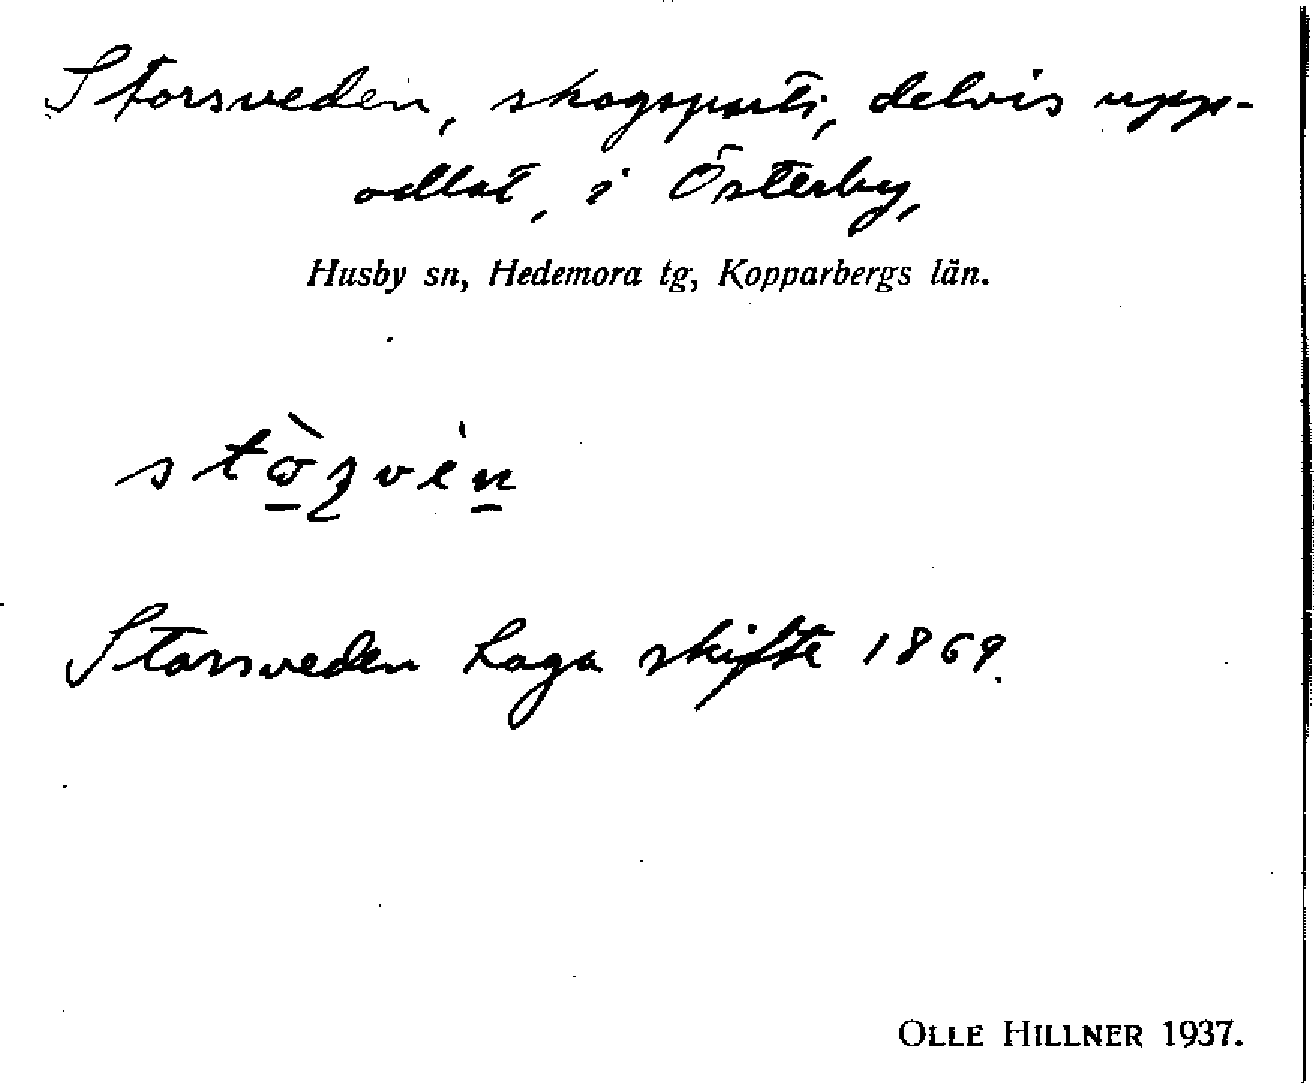 Storsveden, skogsparti, delvis upp-
odlat, i Österby,
Husby sn, Hedemora tg, Kopparbergs län.
Storsveden Laga skifte 1869.
OLLE HILLNER 1937.